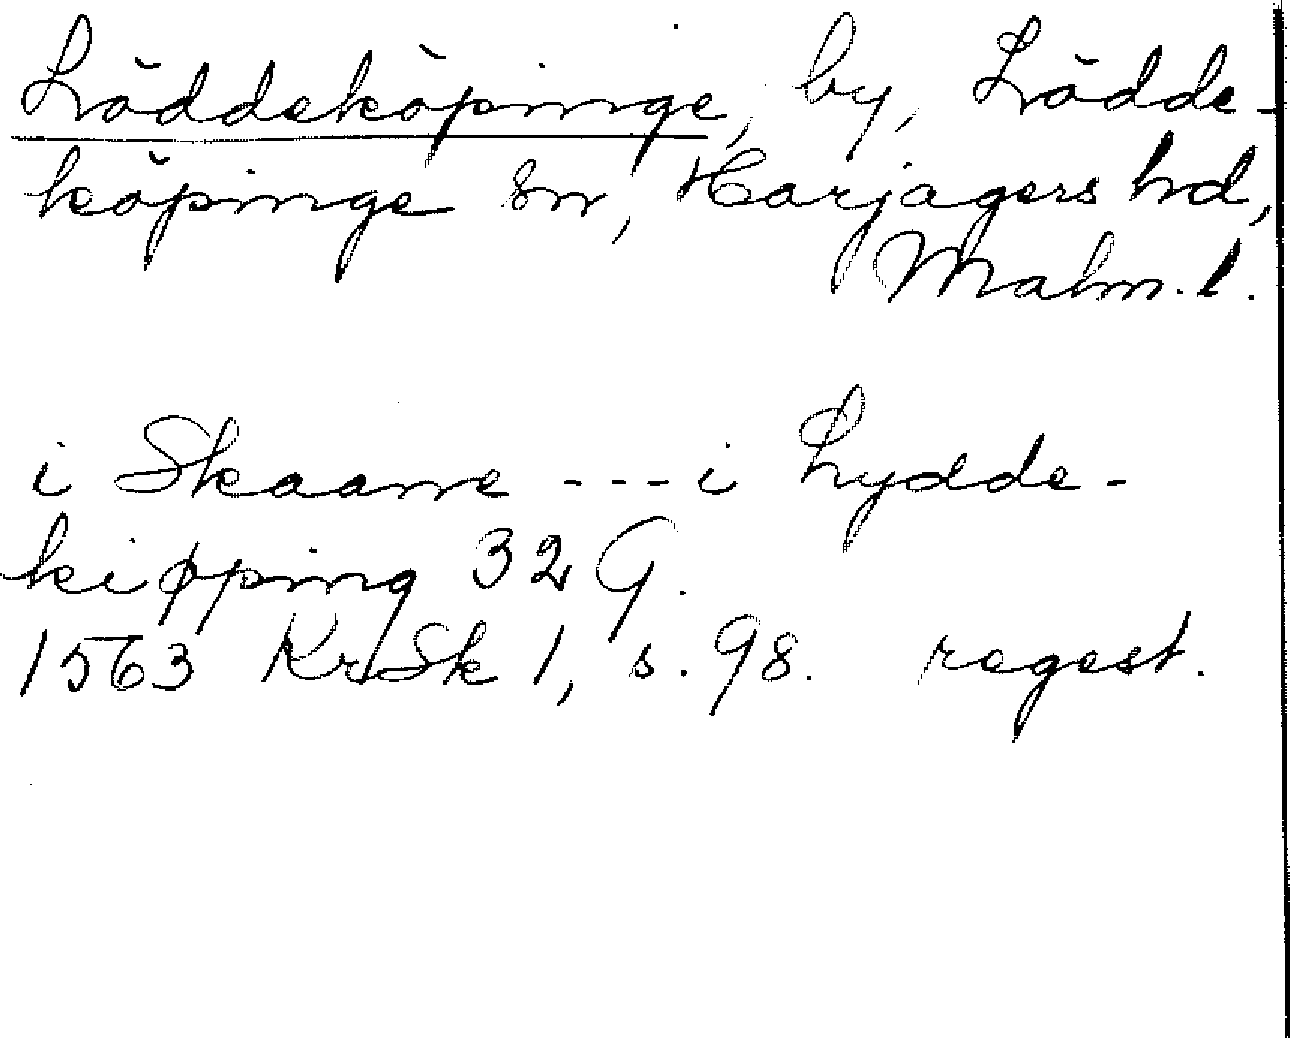 Löddeköpinge, by, Lödde-
köpinge sn, Harjagers hd,
Malm. l.
i Skaane ---- i Lydde-
kiøpping 32 G.
1563 KrSk 1, s. 98. regest.